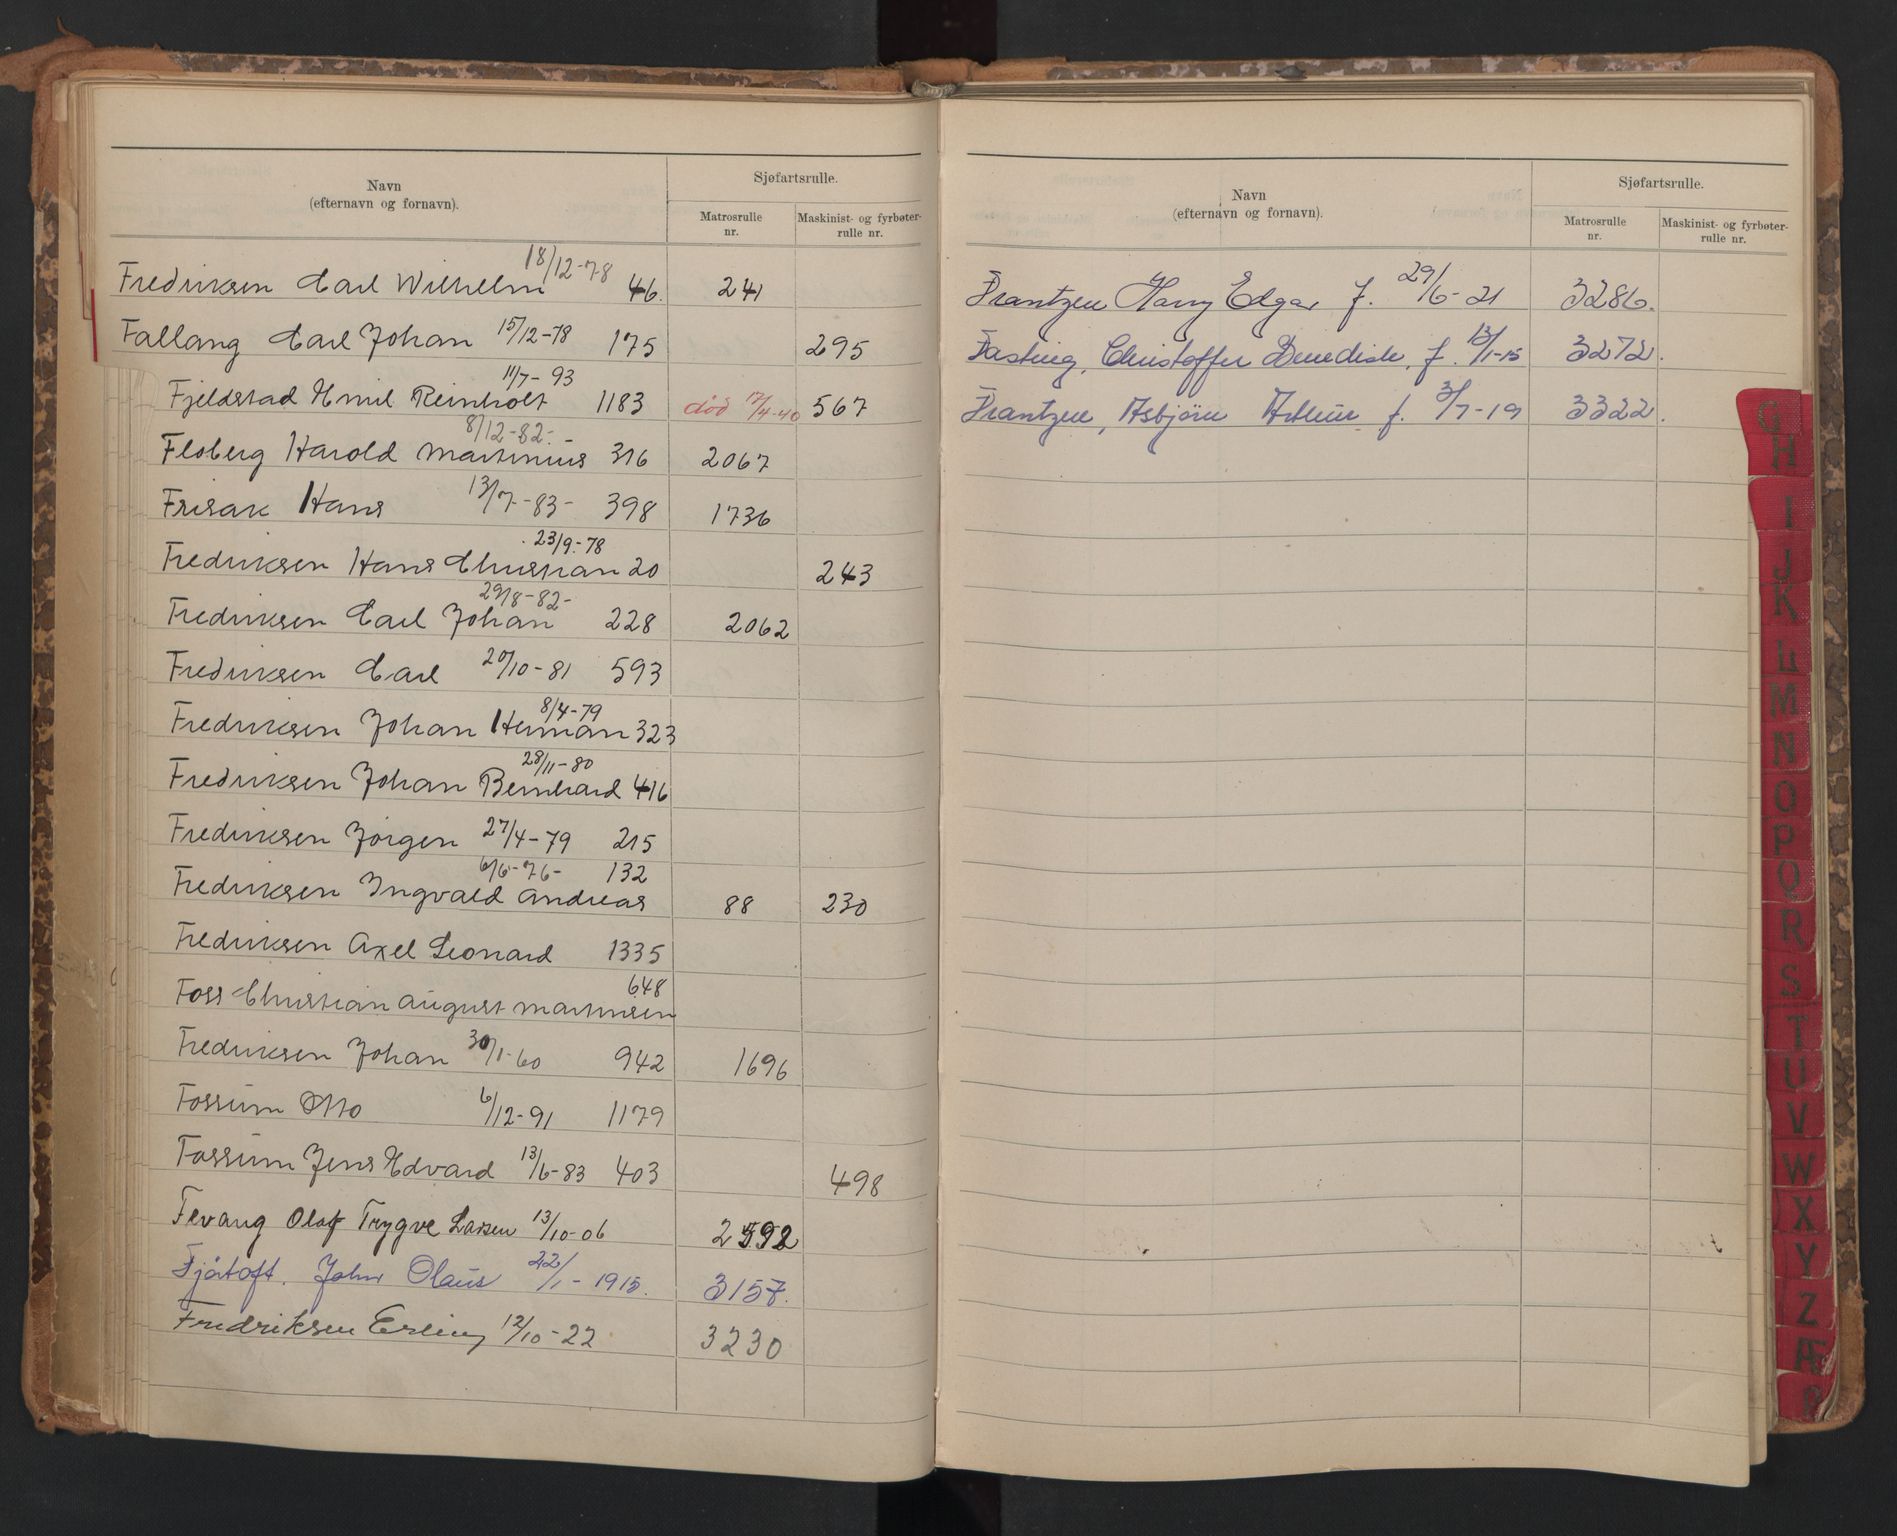 Navn
(efternavn og fornavn).
Sjøfartsrulle.
Matrosrulle
nr.
Maskinist- og fyrbøter-
rulle nr.
Fredriksen Carl Wilhelm 18/12-78 46. 241
Fallang Carl Johan 15/12-78 175 295
Fjeldstad Emil Reinholt 11/7-93 1183 død 17/4-40 567
Floberg Harold Martinius 8/12-82- 316 2067
Frisak Hans 13/7-83- 398 1736
Fredriksen Hans Christian 23/9-78 20 243
Fredriksen Carl Johan 29/8-82- 228 2062
Fredriksen Carl 20/10-81 593
Fredriksen Johan Herman 8/4-79 323
Fredriksen Johan Bernhard 28/11-80 416
Fredriksen Jørgen 27/4-79 215
Fredriksen Ingvald Andreas 6/6-76- 132 88 230
Fredriksen Axel Leonard 1335
Foss Christian August Martinsen 648
Fredriksen Johan 30/1-60 942 1696
Fossum Otto 6/12-91 1179
Fossum Jens Edvard 13/6-83 403 498
Fevang Olaf Trygve Larsen 13/10-06 2592
Fjørtoft. John Olaus 22/1-1915. 3157.
Fredriksen Erling 12/10-22 3230
Navn
(efternavn og fornavn).
Sjøfartsrulle.
Matrosrulle
nr.
Maskinist- og fyrbøter-
rulle nr.
Frantzen Harry Edgar f. 29/6-21 3286.
Fasting, Christoffer Benedick, f. 13/1-15 3272.
Frantzen, Asbjørn Arthur f. 3/7-19 3322.
G
H
I
J
K
L
M
N
O
P
Q
R
S
T
U
V
W
X
Y
Z
Æ